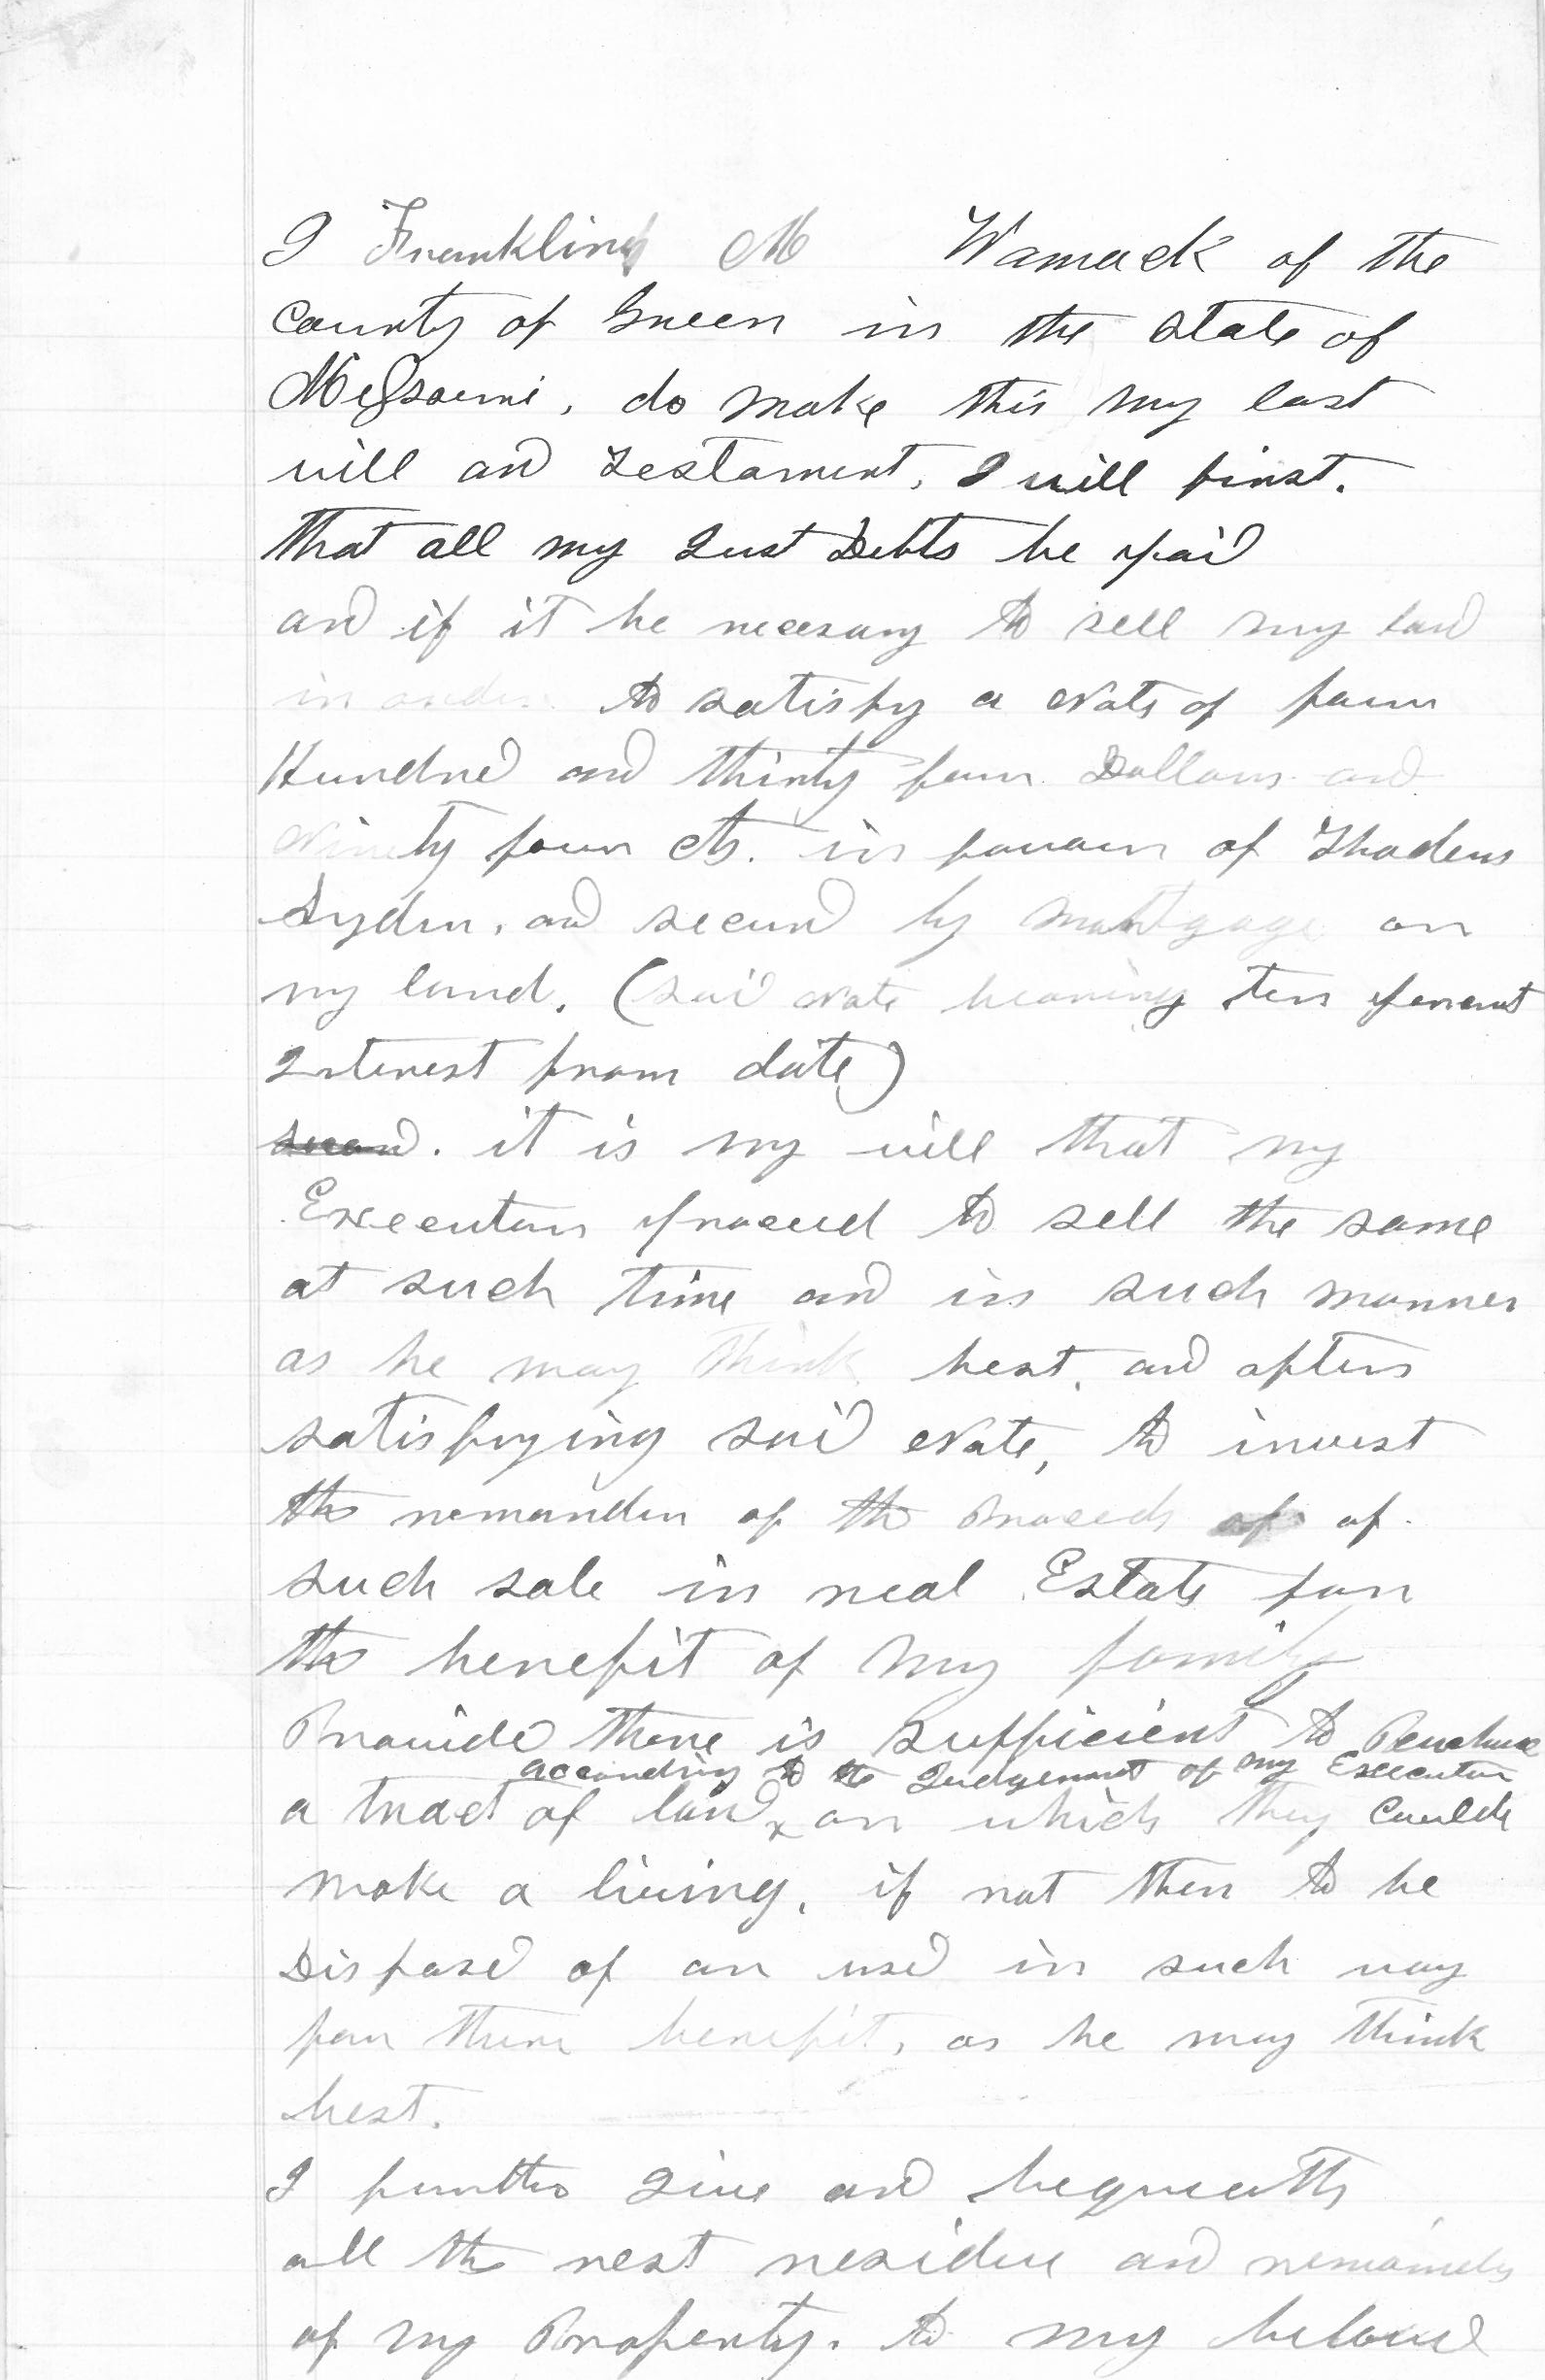 I Franklin M Wamack of the
County of Green in the State of
Missouri, do make this my last
will and Testament, I will first.
That all my Just Debts be paid
and if it be necesary to sell my land
in order to satisfy a Note of four
Hundred and thirty four Dollars and
Ninety four cts. in favour of Thadeus
and secured by Mortgage on
my land, (said Note bearing ten percent
Interest from date)
secand. it is my will that my
Executor proceed to sell the same
at such time and in such manner
as he may think best, and after
satisfying said Note, to invest
the remander of the Proceeds of of
such sale in real Estate for
the benefit of my family
Provided there is sufficient to Purchase
according to the Judgement of my Executor
a tract of land x on which they Could
make a living, if not then to be
Disposed of or used in such way
for there benefit, as he may think
best.
I further give and bequeath
all the rest residue and remainder
of my Property. to my beloved